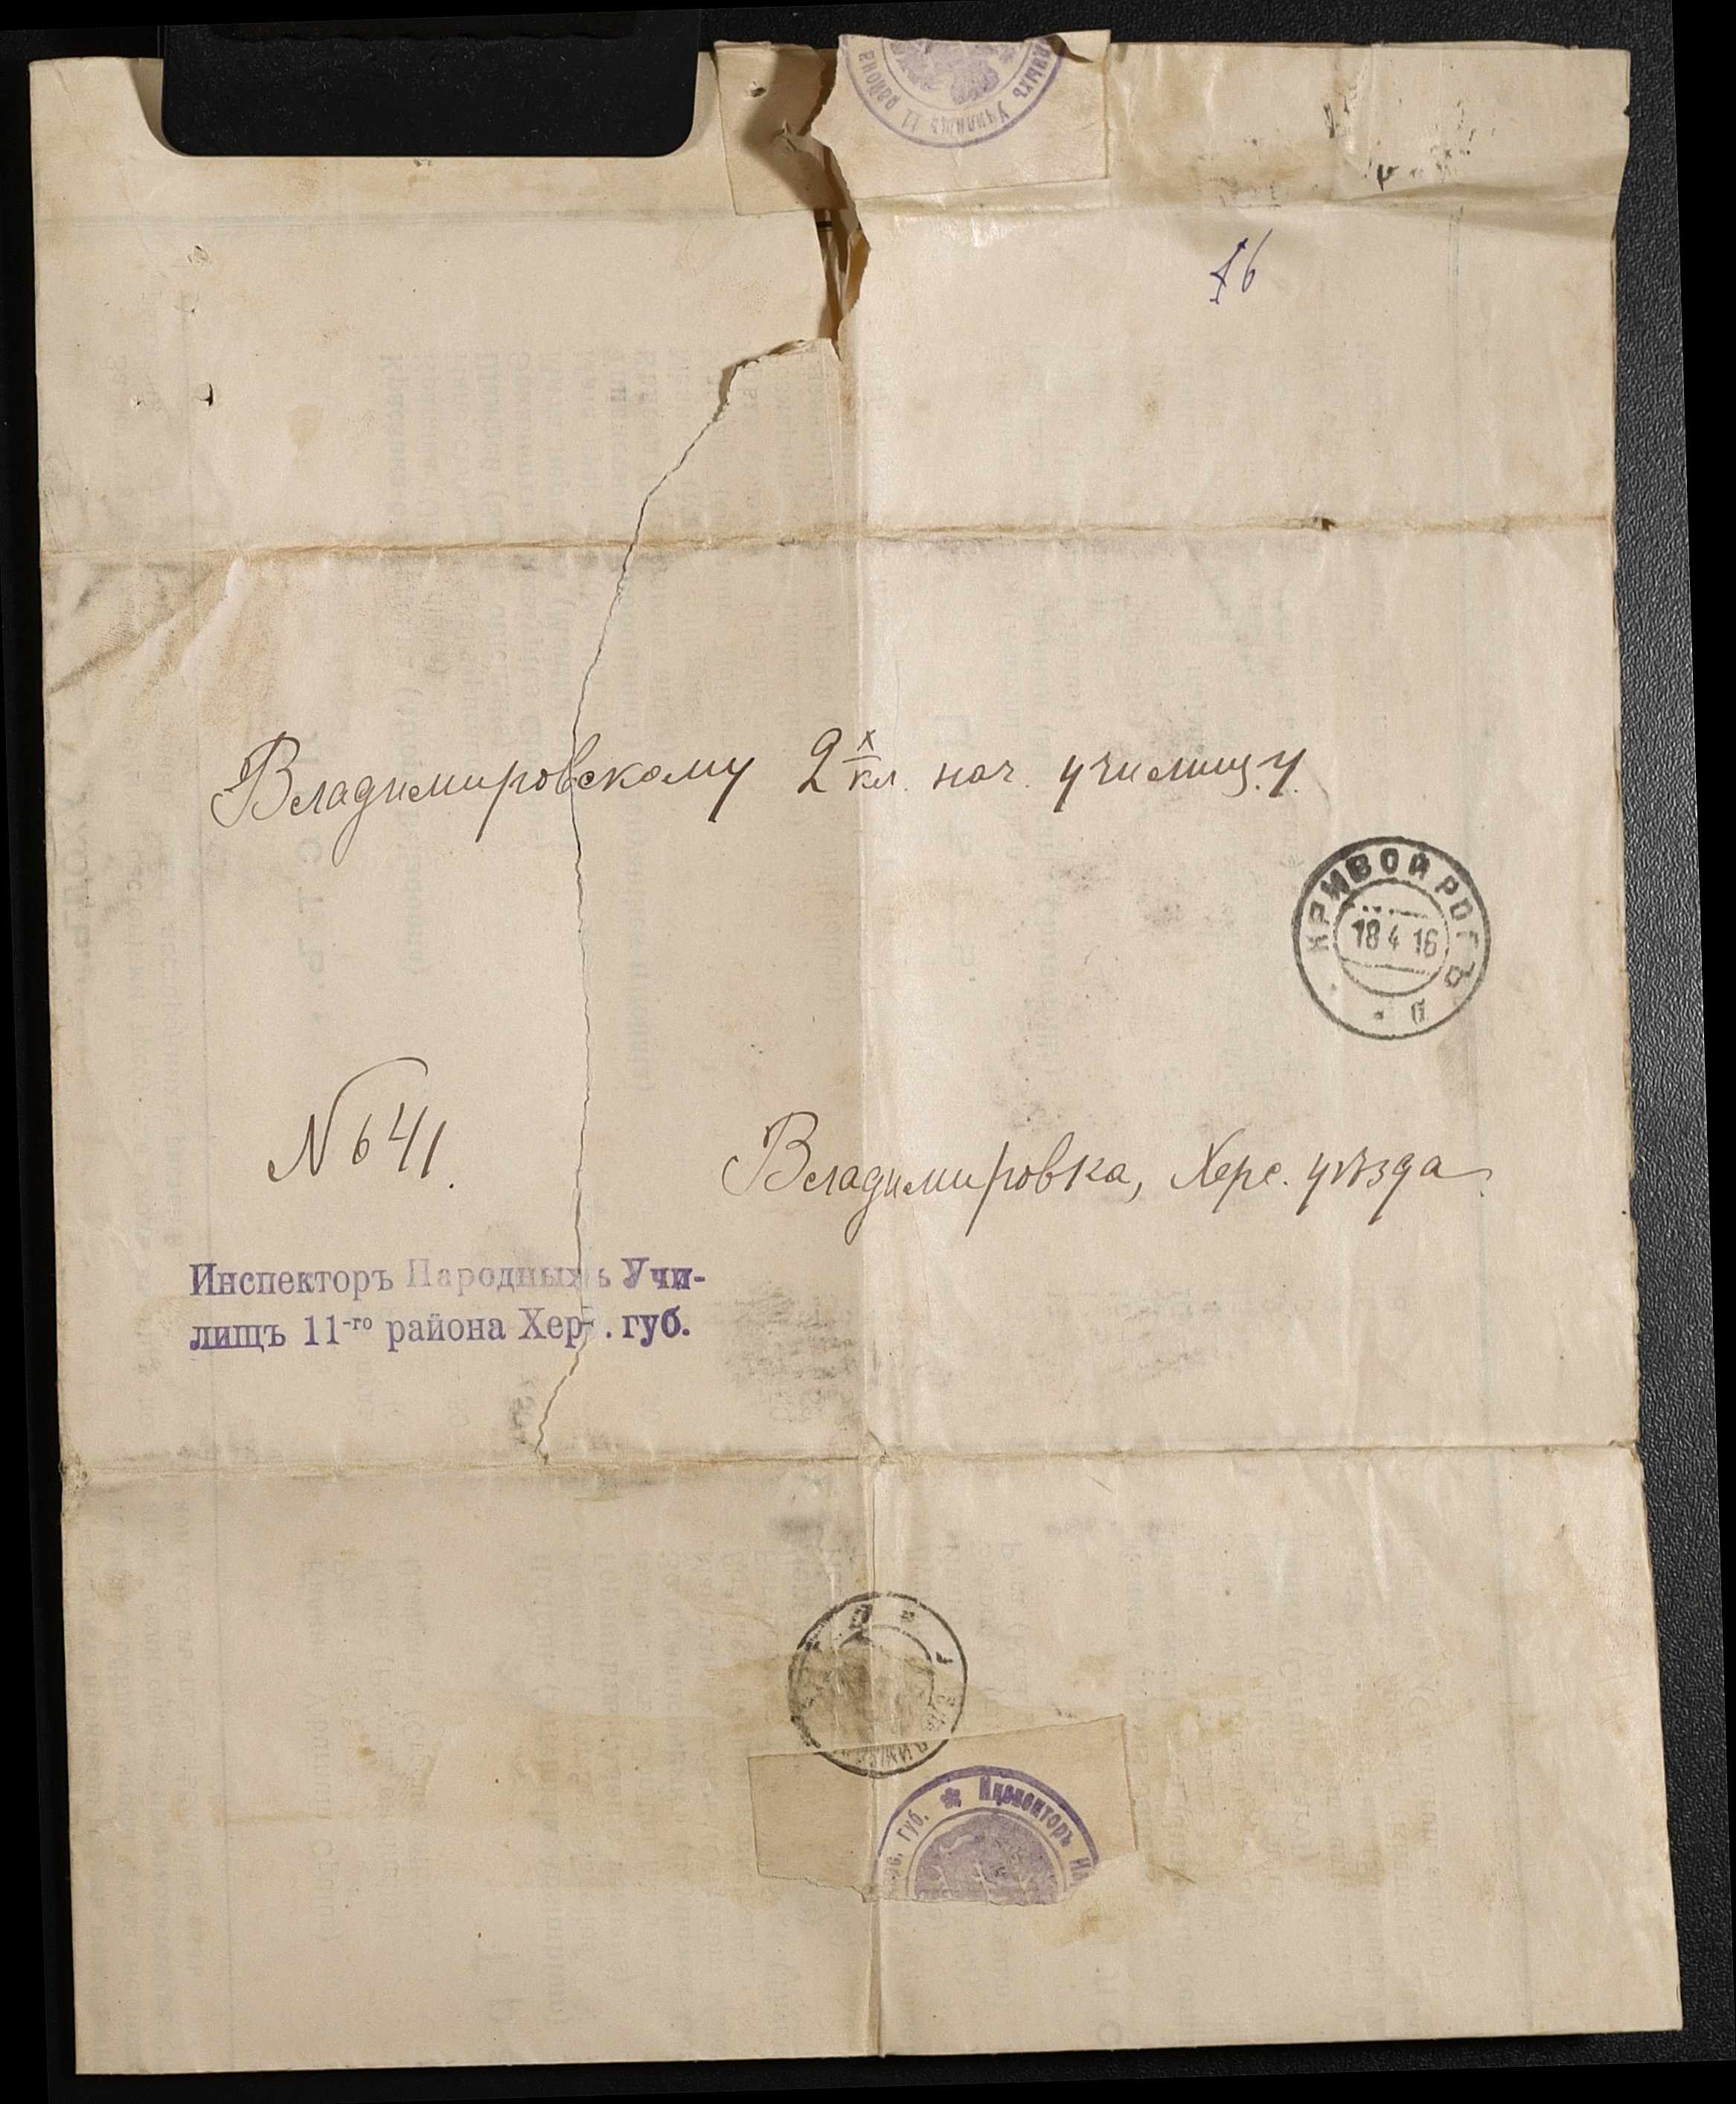 Училищъ 11 района
16
Владимировскому 2х кл. нач. училищу.
КРИВОЙ РОГЪ
18 4 16
N 641.
Владимировка, Херс. уѣзда
Инспекторъ Народныхъ Учи-
лищъ 11-го района Хер . губ.
губ. * Инспекторъ